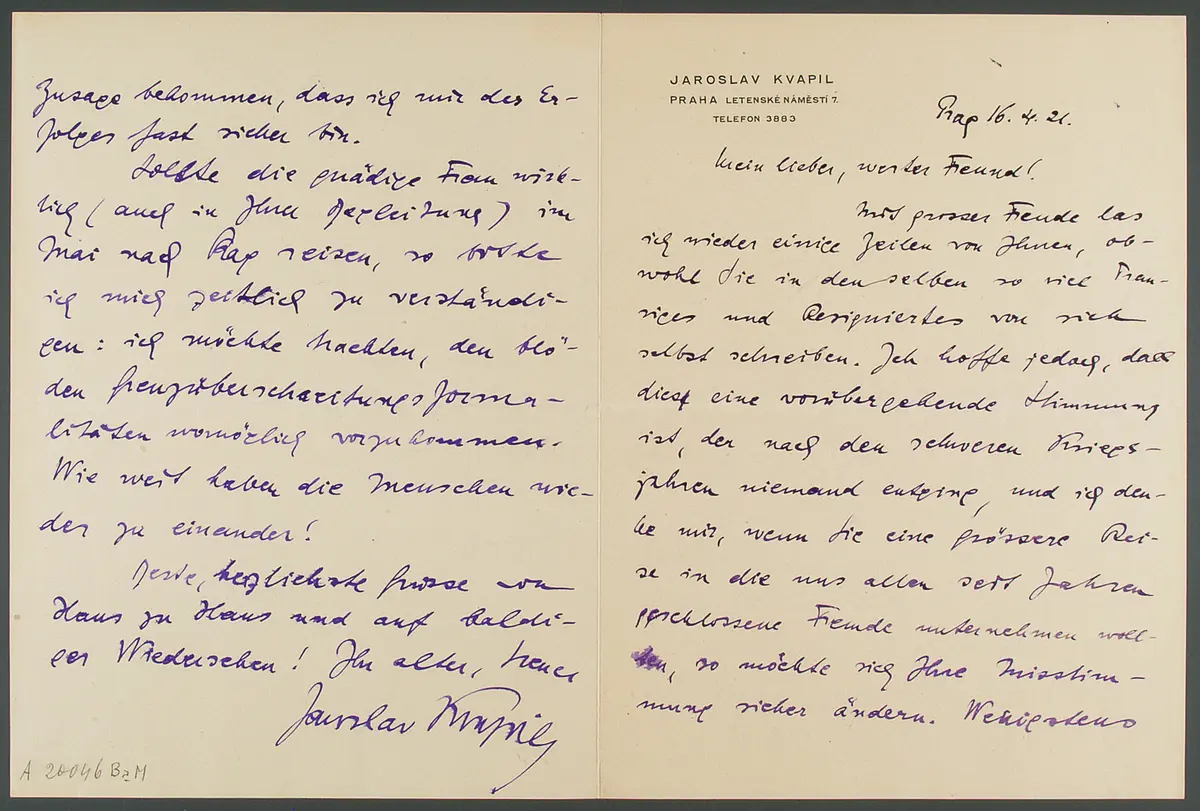 JAROSLAV KVAPIL
PRAHA LETENSKÉ NÁMĚSTÍ 7.
TELEFON 3883
Prag 16. 4. 21.
Mein lieber, werter Freund!
Mit grosser Freude las
ich wieder einige Zeilen von Ihnen, ob-
wohl Sie in denselben so viel Trau-
riges und Resigniertes von sich
selbst schreiben. Ich hoffe jedoch, dass
dies eine vorübergehende Stimmung
ist, der nach den schweren Kriegs-
jahren niemand entging, und ich den-
ke mir, wenn Sie eine grössere Rei-
se in die uns allen seit Jahren
geschlossene Fremde unternehmen woll-
ten, so möchte sich Ihre Misstim-
mung sicher ändern. Wenigstens
Zusage bekommen, dass ich mir des Er-
folges fast sicher bin.
Sollte die gnädige Frau wirk-
lich (auch in Ihrer Begleitung) im
Mai nach Prag reisen, so bitte
ich mich zeitlich zu verständi-
gen: ich möchte trachten, den blö-
den Grenzüberschreitungsforma-
litäten womöglich vorzukommen.
Wie weit haben die Menschen wie-
der zu einander!
Beste, herzlichste Grüsse von
Haus zu Haus und auf baldi-
ges Wiedersehen! Ihr alter, treuer
Jaroslav Kvapil
A 20046 BaM